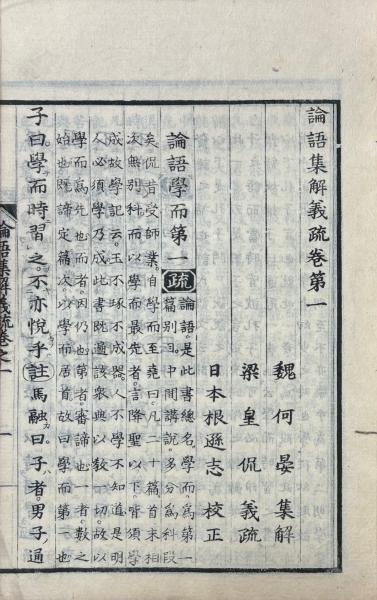 論語集解義疏卷第一
魏何晏集解
梁皇侃義疏
日本根遜志校正
論語學而第一疏論語是此書總名學而為第一
篇別目中間講說多分為科段
矣侃昔受師業自學而至堯曰凡二十篇首末相
次無別科而以學而最先者言降聖以下皆須學
成故學記云玉不琢不成器人不學不知道是明
人必須學乃成此書既遍該眾典以教一切故以
學而為先也而者因仍也第者審諦也一者數之
始也既諦定篇次以學而居首故曰學而第一也
子曰學而時習之不亦悅乎註馬融曰子者男子通
論語集解義疏卷之一